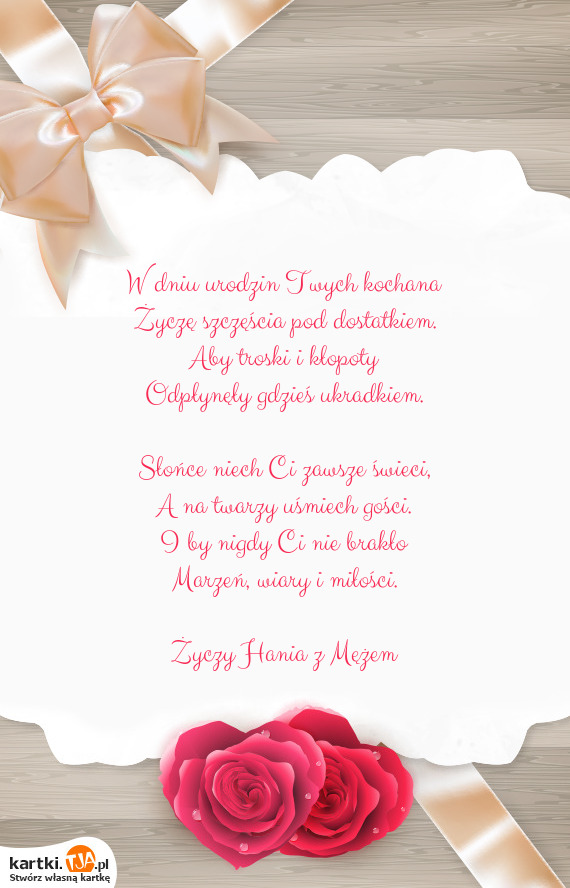 W dniu urodzin Twych kochana
Życzę szczęścia pod dostatkiem.
Aby troski i kłopoty
Odpłynęły gdzieś ukradkiem.
Słońce niech Ci zawsze świeci,
A na twarzy uśmiech gości.
I by nigdy Ci nie brakło
Marzeń, wiary i miłości.
Życzy Hania z Mężem
kartki.TJA.pl
Stwórz własną kartkę